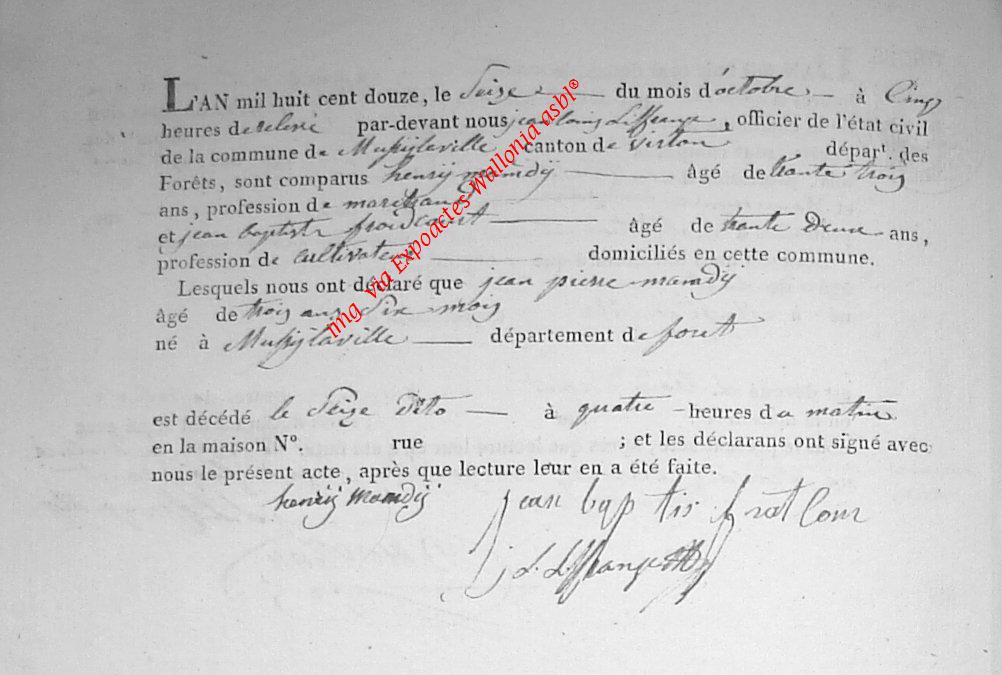 L'AN mil huit cent douze, le Seize du mois d'octobre à Cinq
heures de relevé par-devant nous jean louis , officier de l'état civil
de la commune de Mussylaville canton de virton départ. des
Forêts, sont comparus henrij mamdij âgé de trante trois
ans, profession de marchand
et jean baptiste froidcourt âgé de trante Deux ans,
profession de cultivateur domiciliés en cette commune.
Lesquels nous ont déclaré que jean pierre mamdij
âgé de trois ans Six mois
né à Mussylaville département de foret
est décédé le Seize dito à quatre heures du matin
en la maison N°. rue ; et les déclarans ont signé avec
nous le présent acte, après que lecture leur en a été faite.
henrij mamdij
jean baptis
j L
img via Expoactes-Wallonia asbl®